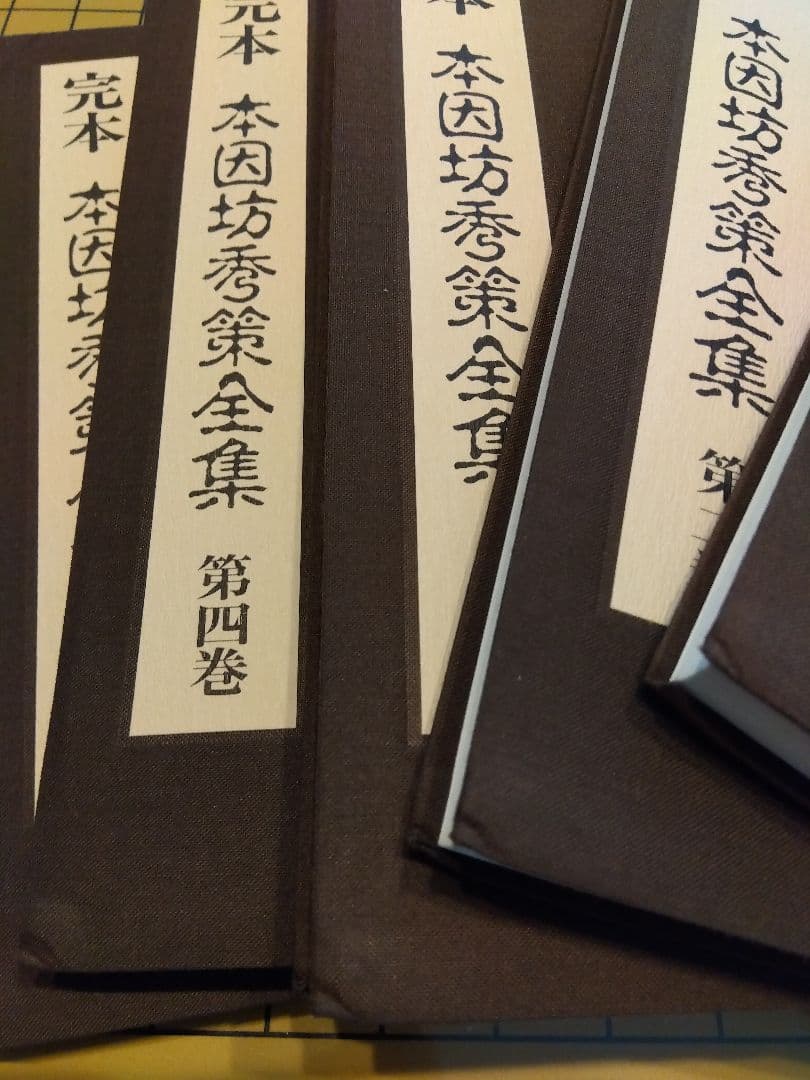 完本 本因坊秀
完本 本因坊秀策全集 第四巻
本 本因坊秀策全集
本因坊秀策全集 第